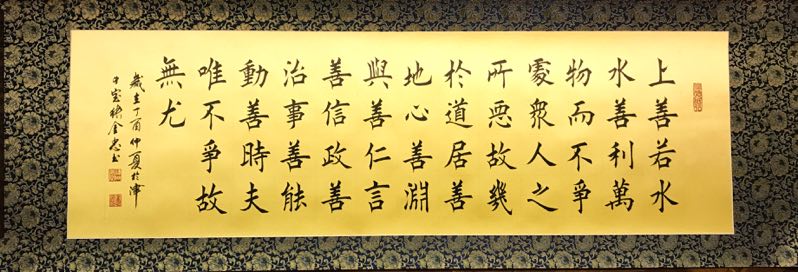 上善若水
水善利萬
物而不爭
處衆人之
所惡故幾
於道居善
地心善淵
與善仁言
善信政善
治事善能
動善時夫
唯不爭故
無尤
歲在丁酉仲夏於津
金忠书